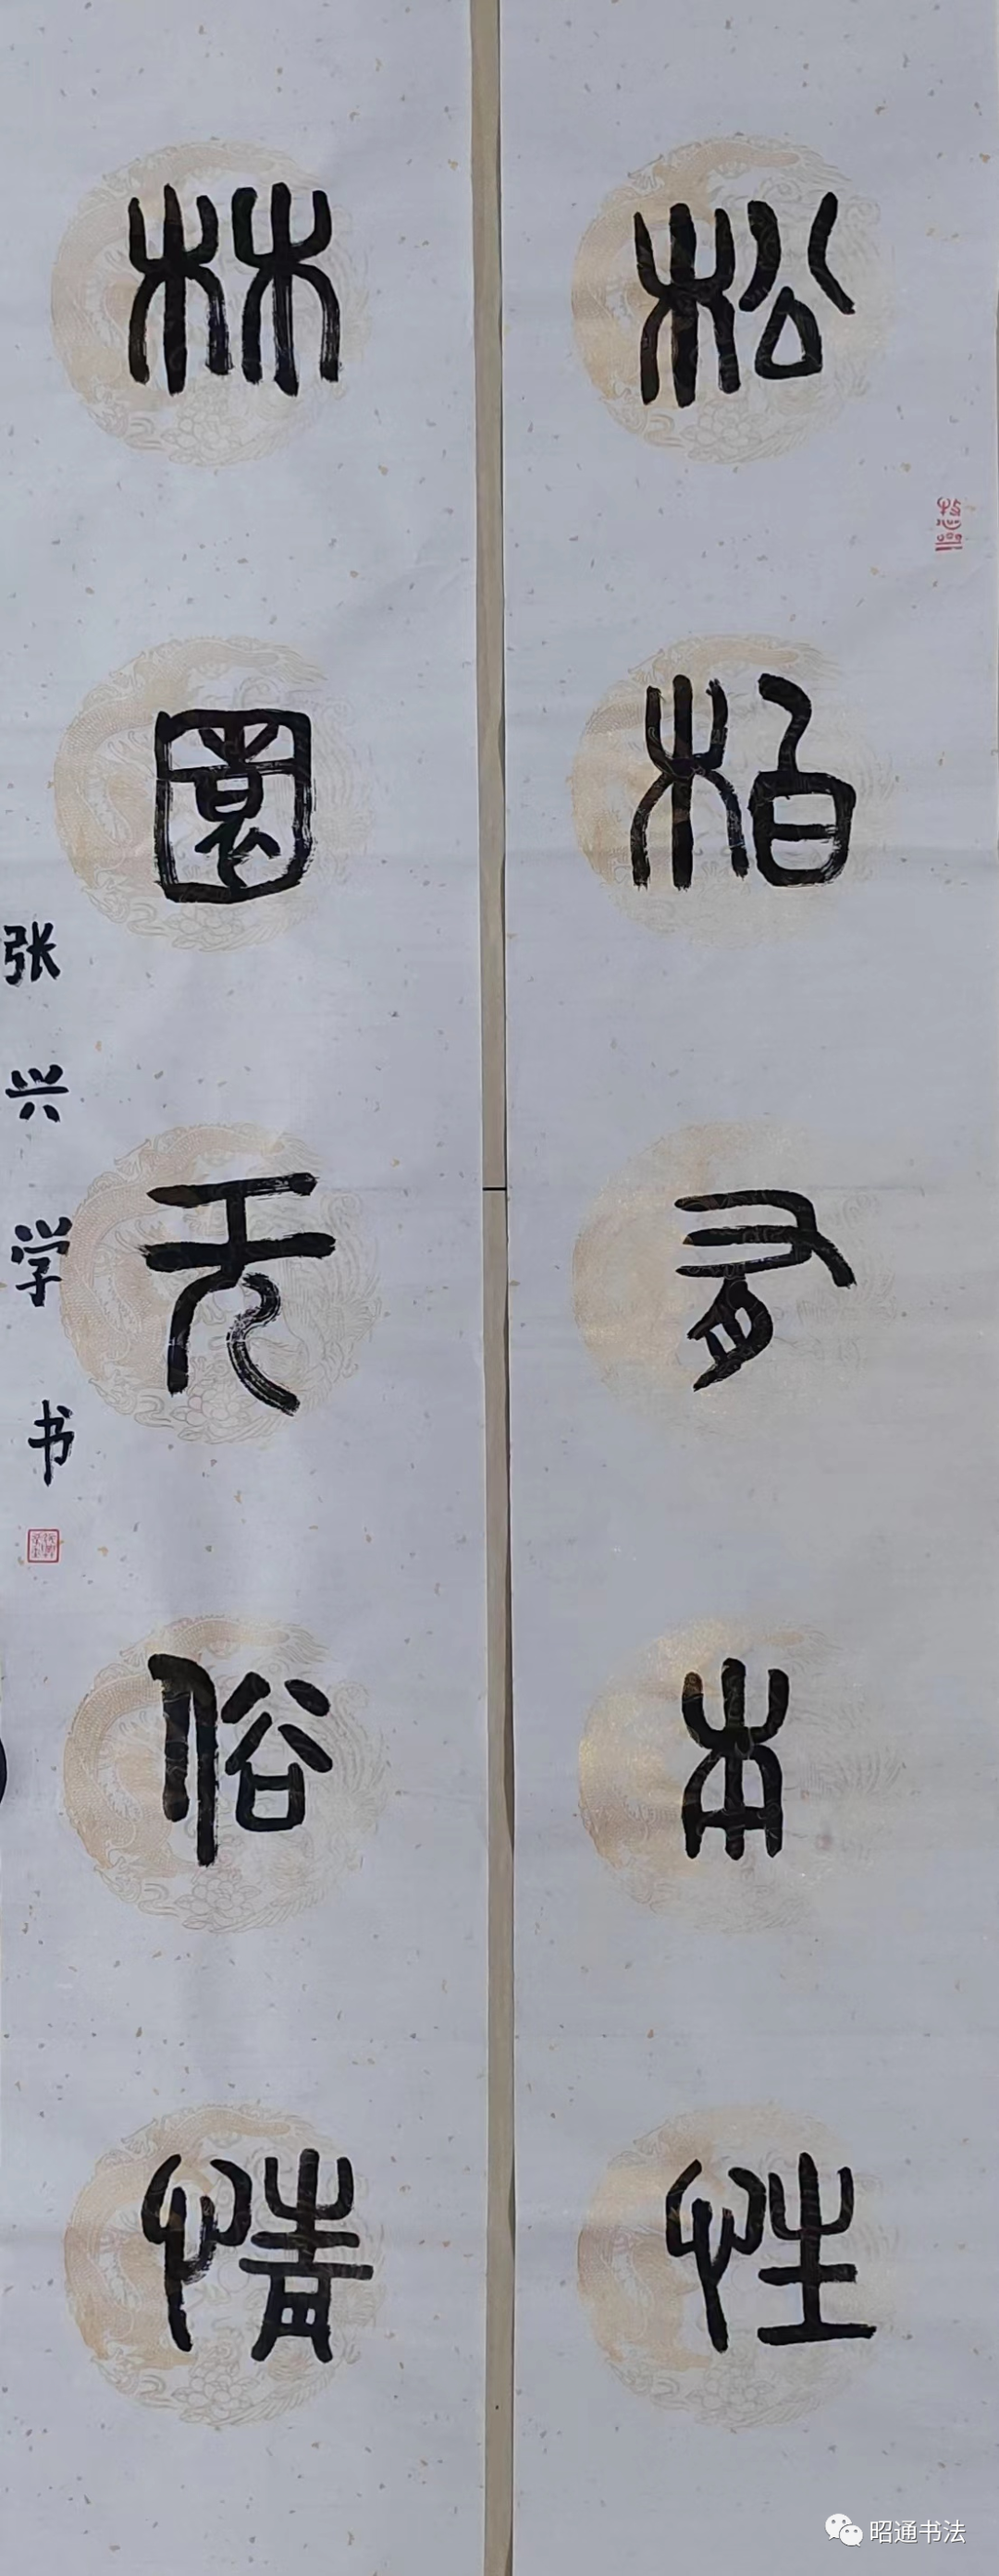 松柏有本性
林園无俗情
张兴学书
昭通书法